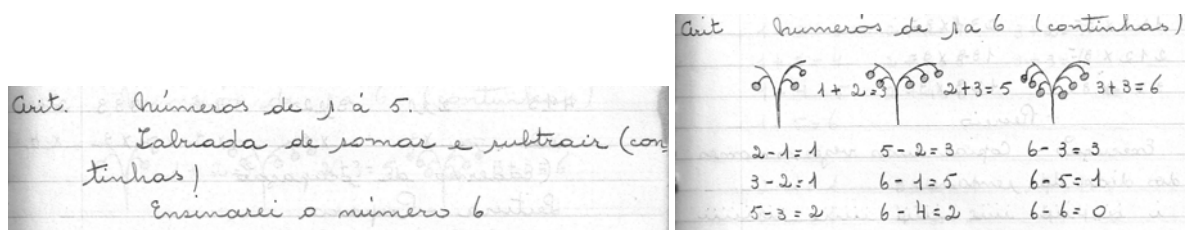 Arit. Números de 1 á 5.
Tabuada de somar e subtrair (con
tinhas)
Ensinarei o número 6
Arit Numeros de 1 a 6 (continhas)
1+2=3 2+3=5 3+3=6
2-1=1 5-2=3 6-3=3
3-2=1 6-1=5 6-5=1
5-3=2 6-4=2 6-6=0